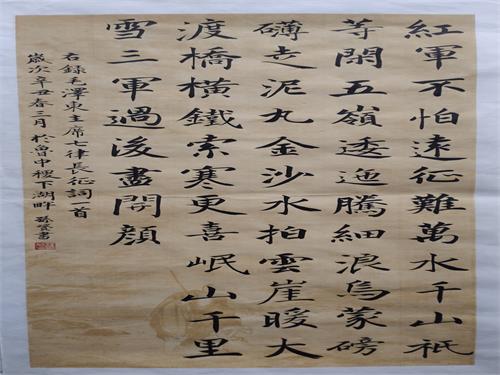 紅軍不怕遠征難萬水千山祇
等閑五嶺逶迤騰細浪烏蒙磅
礴走泥丸金沙水拍雲崖暖大
渡橋橫鐵索寒更喜岷山千里
雪三軍過後盡開顏
右錄毛澤東主席七律長征詞一首
歲次辛丑春三月於魯中稷下湖畔 書